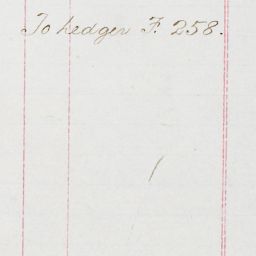 To Ledger F. 258.